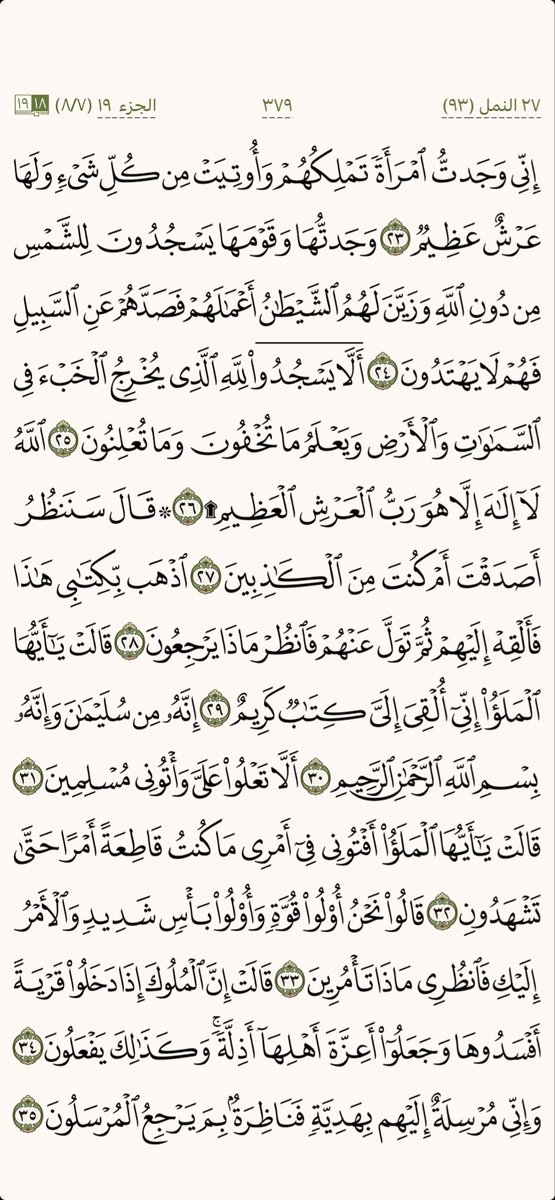 ٢٧ النمل (٩٣) ٣٧٩ الجزء ١٩ (٨/٧) ١٨ ١٩
إِنِّي وَجَدتُّ ٱمْرَأَةً تَمْلِكُهُمْ وَأُوتِيَتْ مِن كُلِّ شَيْءٍ وَلَهَا
عَرْشٌ عَظِيمٌ ٢٣ وَجَدتُّهَا وَقَوْمَهَا يَسْجُدُونَ لِلشَّمْسِ
مِن دُونِ ٱللَّهِ وَزَيَّنَ لَهُمُ ٱلشَّيْطَٰنُ أَعْمَٰلَهُمْ فَصَدَّهُمْ عَنِ ٱلسَّبِيلِ
فَهُمْ لَا يَهْتَدُونَ ٢٤ أَلَّا يَسْجُدُوا۟ لِلَّهِ ٱلَّذِي يُخْرِجُ ٱلْخَبْءَ فِي
ٱلسَّمَٰوَٰتِ وَٱلْأَرْضِ وَيَعْلَمُ مَا تُخْفُونَ وَمَا تُعْلِنُونَ ٢٥ ٱللَّهُ
لَآ إِلَٰهَ إِلَّا هُوَ رَبُّ ٱلْعَرْشِ ٱلْعَظِيمِ ۩ ٢٦ ۞ قَالَ سَنَنظُرُ
أَصَدَقْتَ أَمْ كُنتَ مِنَ ٱلْكَٰذِبِينَ ٢٧ ٱذْهَب بِّكِتَٰبِي هَٰذَا
فَأَلْقِهْ إِلَيْهِمْ ثُمَّ تَوَلَّ عَنْهُمْ فَٱنظُرْ مَاذَا يَرْجِعُونَ ٢٨ قَالَتْ يَٰٓأَيُّهَا
ٱلْمَلَؤُا۟ إِنِّيٓ أُلْقِيَ إِلَيَّ كِتَٰبٌ كَرِيمٌ ٢٩ إِنَّهُۥ مِن سُلَيْمَٰنَ وَإِنَّهُۥ
بِسْمِ ٱللَّهِ ٱلرَّحْمَٰنِ ٱلرَّحِيمِ ٣٠ أَلَّا تَعْلُوا۟ عَلَيَّ وَأْتُونِي مُسْلِمِينَ ٣١
قَالَتْ يَٰٓأَيُّهَا ٱلْمَلَؤُا۟ أَفْتُونِي فِيٓ أَمْرِي مَا كُنتُ قَاطِعَةً أَمْرًا حَتَّىٰ
تَشْهَدُونِ ٣٢ قَالُوا۟ نَحْنُ أُو۟لُوا۟ قُوَّةٍ وَأُو۟لُوا۟ بَأْسٍ شَدِيدٍ وَٱلْأَمْرُ
إِلَيْكِ فَٱنظُرِي مَاذَا تَأْمُرِينَ ٣٣ قَالَتْ إِنَّ ٱلْمُلُوكَ إِذَا دَخَلُوا۟ قَرْيَةً
أَفْسَدُوهَا وَجَعَلُوٓا۟ أَعِزَّةَ أَهْلِهَآ أَذِلَّةً ۖ وَكَذَٰلِكَ يَفْعَلُونَ ٣٤
وَإِنِّي مُرْسِلَةٌ إِلَيْهِم بِهَدِيَّةٍ فَنَاظِرَةٌۢ بِمَ يَرْجِعُ ٱلْمُرْسَلُونَ ٣٥